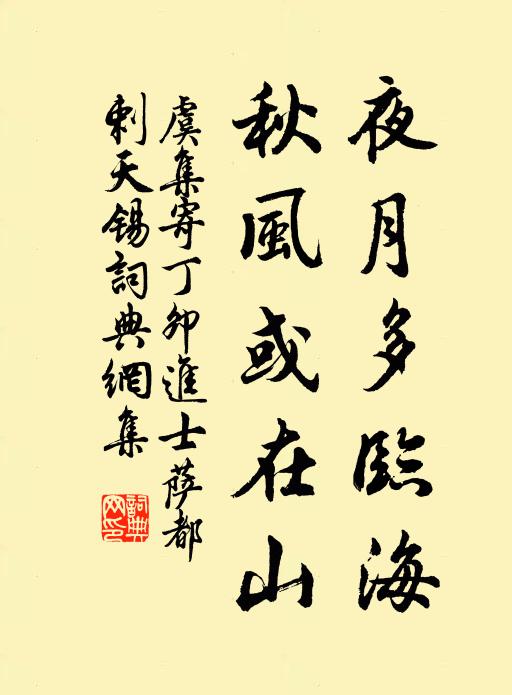 夜月多臨海
秋風或在山
虞集寄丁卯進士薩都
刺天錫詞典網集
詞典
网印